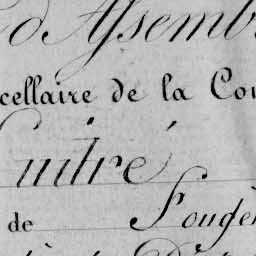 d'Assemb
cellaire de la Co
uitré
de Fougè